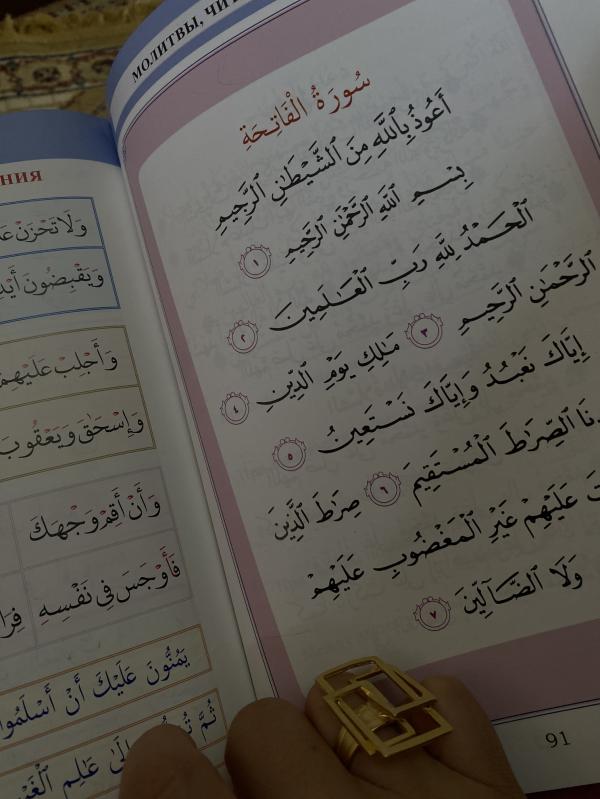 НИЯ
وَلَا تَحْزَنْ
وَيَقْبِضُونَ
وَأَجْلِبْ عَلَيْهِم
وَإِسْحَٰقَ وَيَعْقُوبَ
وَأَنْ أَقِمْ وَجْهَكَ
فَأَوْجَسَ فِي نَفْسِهِ
يَمُنُّونَ عَلَيْكَ أَنْ أَسْلَمُوا
ثُمَّ عَٰلِمِ
МОЛИТВЫ,
سُورَةُ الْفَاتِحَةِ
أَعُوذُ بِاللَّهِ مِنَ الشَّيْطَٰنِ الرَّجِيمِ
بِسْمِ اللَّهِ الرَّحْمَٰنِ الرَّحِيمِ ١
الْحَمْدُ لِلَّهِ رَبِّ الْعَٰلَمِينَ ٢
الرَّحْمَٰنِ الرَّحِيمِ ٣ مَٰلِكِ يَوْمِ الدِّينِ ٤
إِيَّاكَ نَعْبُدُ وَإِيَّاكَ نَسْتَعِينُ ٥
نَا الصِّرَٰطَ الْمُسْتَقِيمَ ٦ صِرَٰطَ الَّذِينَ
تَ عَلَيْهِمْ غَيْرِ الْمَغْضُوبِ عَلَيْهِمْ
وَلَا الضَّآلِّينَ ٧
91